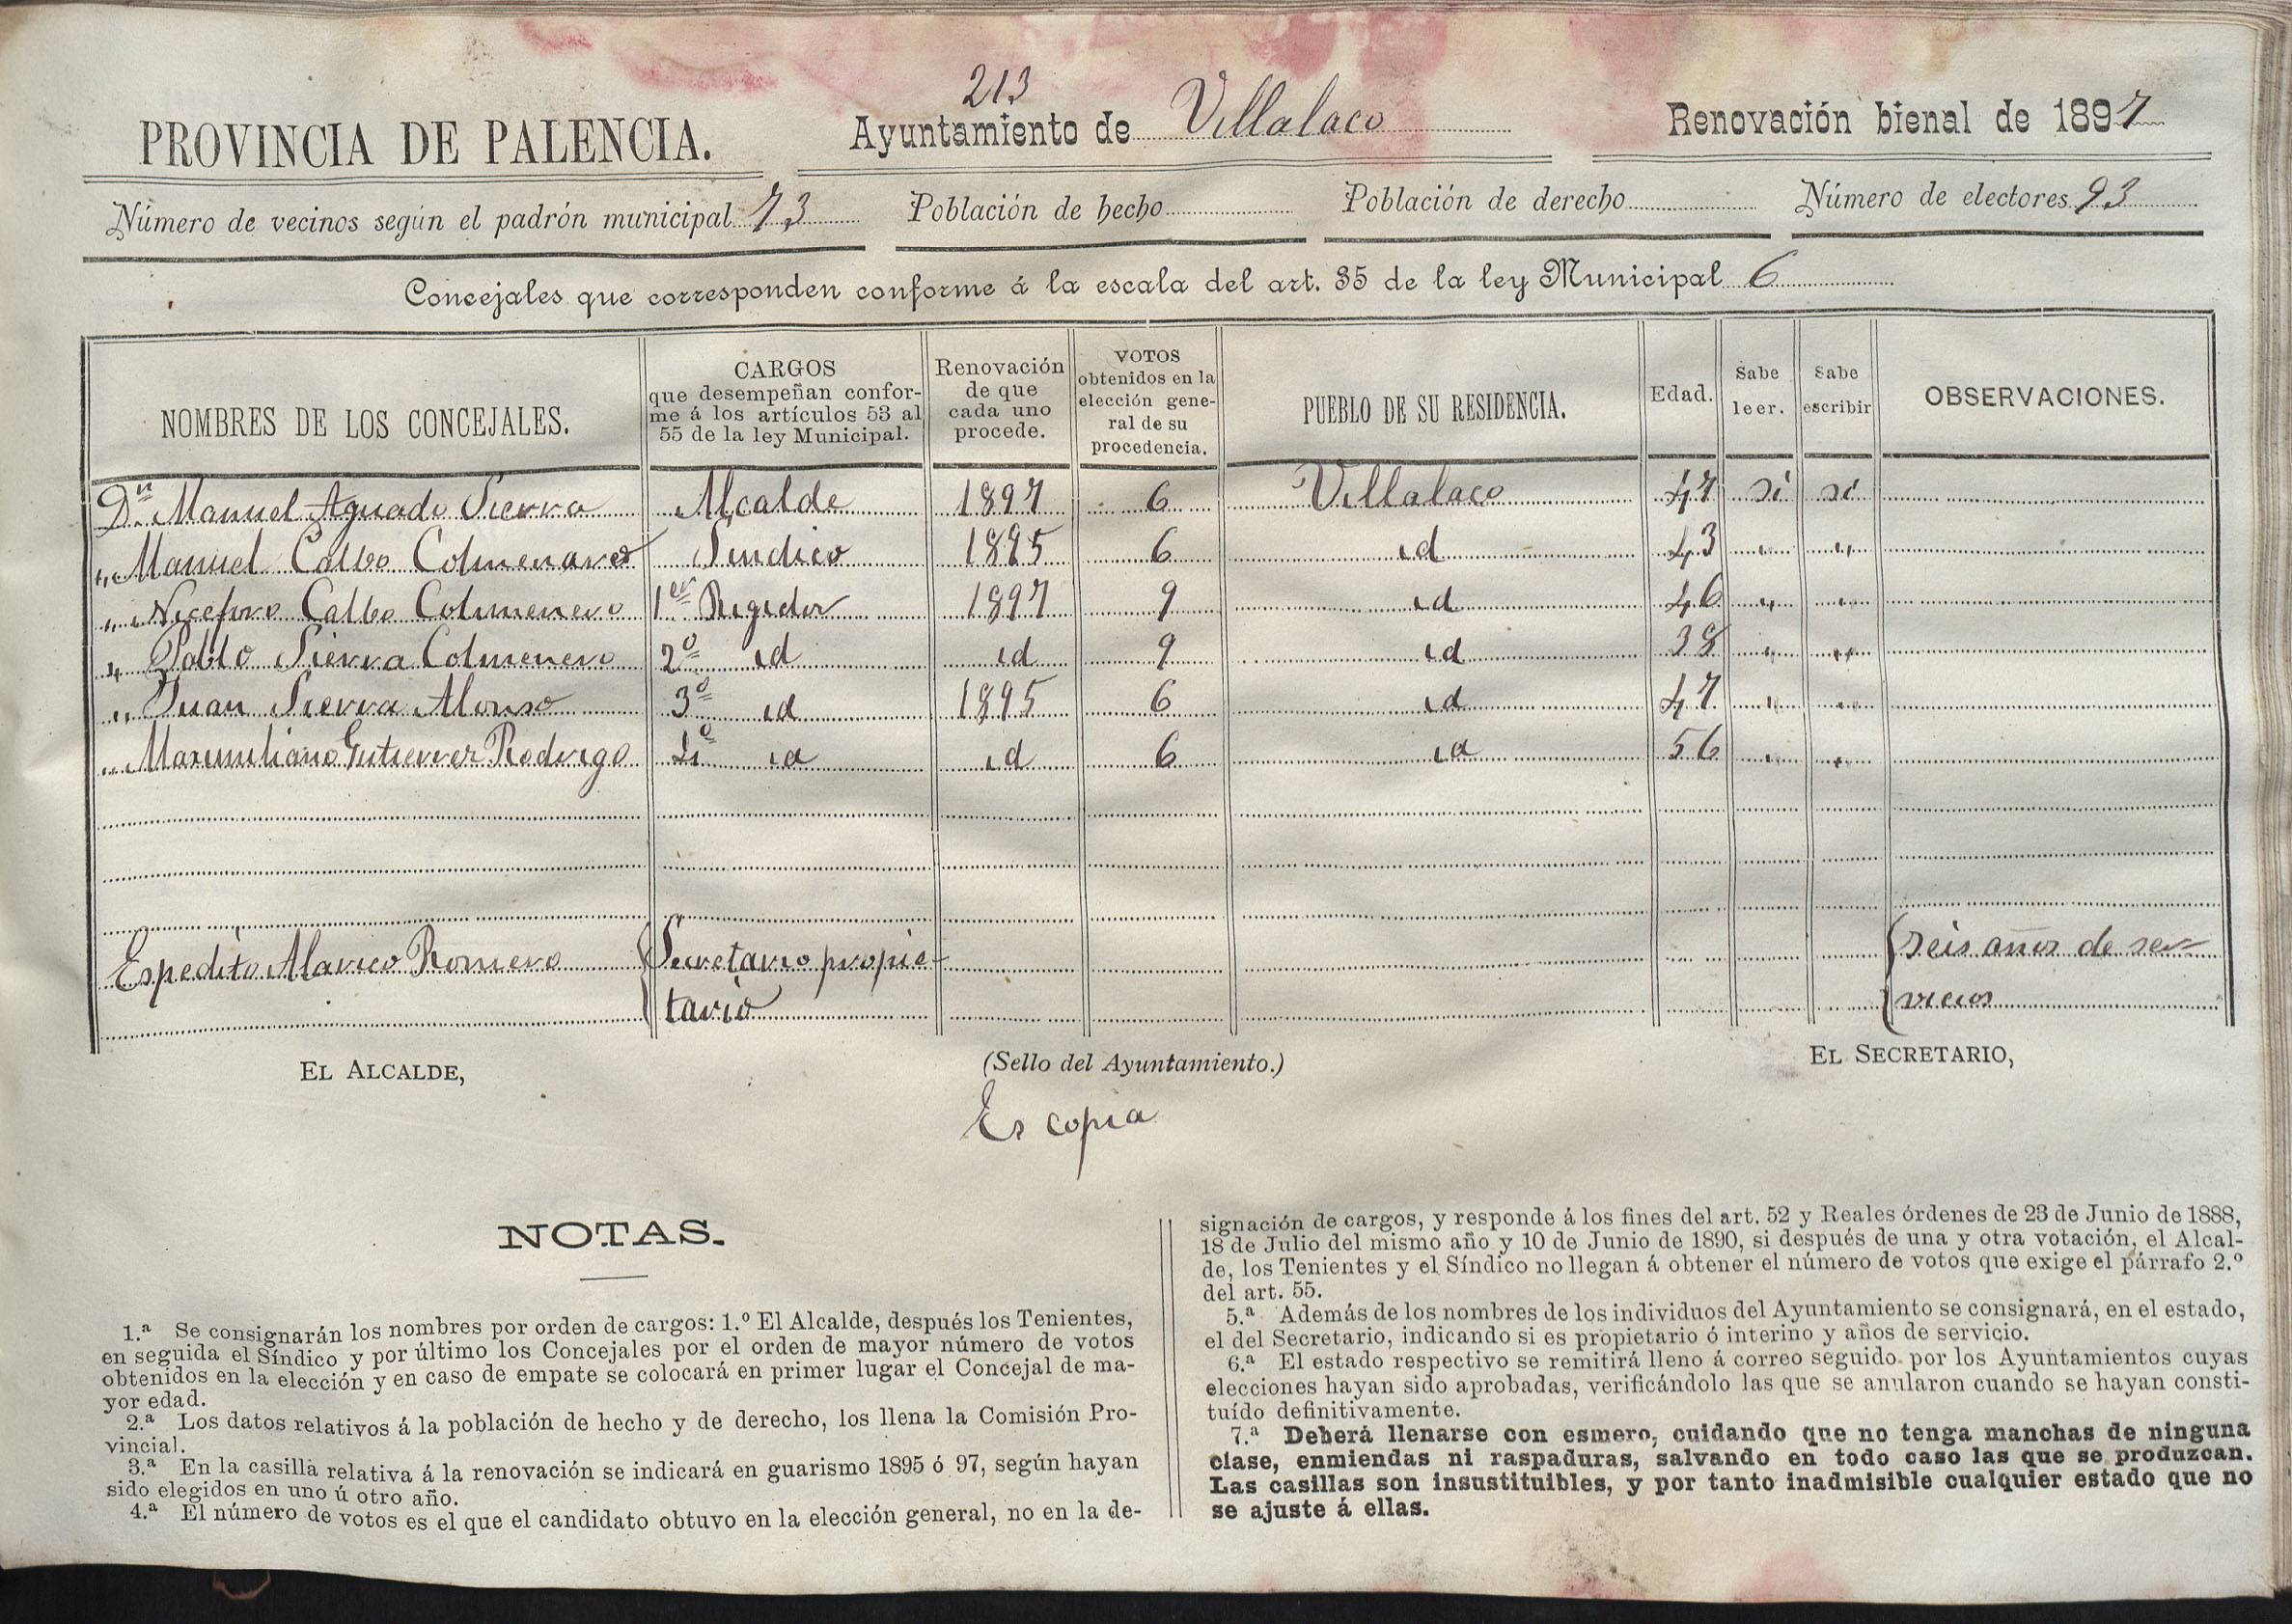 213
PROVINCIA DE PALENCIA. Ayuntamiento de Villalaco Renovación bienal de 1897
Número de vecinos según el padrón municipal 73 Población de hecho Población de derecho Número de electores 93
Concejales que corresponden conforme á la escala del art. 35 de la ley Municipal 6
NOMBRES DE LOS CONCEJALES. CARGOS que desempeñan conforme á los artículos 53 al 55 de la ley Municipal. Renovación de que cada uno procede. VOTOS obtenidos en la elección general de su procedencia. PUEBLO DE SU RESIDENCIA. Edad. Sabe leer. Sabe escribir OBSERVACIONES.
Dn Manuel Aguado Sierra Alcalde 1897 6 Villalaco 47 si si
" Manuel Calbo Colmenares Sindico 1895 6 id 43 " "
" Niceforo Calbo Colmenero 1er Regidor 1897 9 id 46 " "
" Pablo Sierra Colmenero 2º id id 9 id 38 " "
" Juan Sierra Alonso 3º id 1895 6 id 47 " "
" Maximiliano Gutierrez Rodrigo 4º id id 6 id 56 " "
Espedito Alarico Romero Secretario propie- seis años de ser-
tario vicios
EL ALCALDE, (Sello del Ayuntamiento.) EL SECRETARIO,
Es copia
NOTAS.
1.ª Se consignarán los nombres por orden de cargos: 1.º El Alcalde, después los Tenientes,
en seguida el Síndico y por último los Concejales por el orden de mayor número de votos
obtenidos en la elección y en caso de empate se colocará en primer lugar el Concejal de ma-
yor edad.
2.ª Los datos relativos á la población de hecho y de derecho, los llena la Comisión Pro-
vincial.
3.ª En la casilla relativa á la renovación se indicará en guarismo 1895 ó 97, según hayan
sido elegidos en uno ú otro año.
4.ª El número de votos es el que el candidato obtuvo en la elección general, no en la de-
signación de cargos, y responde á los fines del art. 52 y Reales órdenes de 23 de Junio de 1888,
18 de Julio del mismo año y 10 de Junio de 1890, si después de una y otra votación, el Alcal-
de, los Tenientes y el Síndico no llegan á obtener el número de votos que exige el párrafo 2.º
del art. 55.
5.ª Además de los nombres de los individuos del Ayuntamiento se consignará, en el estado,
el del Secretario, indicando si es propietario ó interino y años de servicio.
6.ª El estado respectivo se remitirá lleno á correo seguido por los Ayuntamientos cuyas
elecciones hayan sido aprobadas, verificándolo las que se anularon cuando se hayan consti-
tuído definitivamente.
7.ª Deberá llenarse con esmero, cuidando que no tenga manchas de ninguna
clase, enmiendas ni raspaduras, salvando en todo caso las que se produzcan.
Las casillas son insustituibles, y por tanto inadmisible cualquier estado que no
se ajuste á ellas.